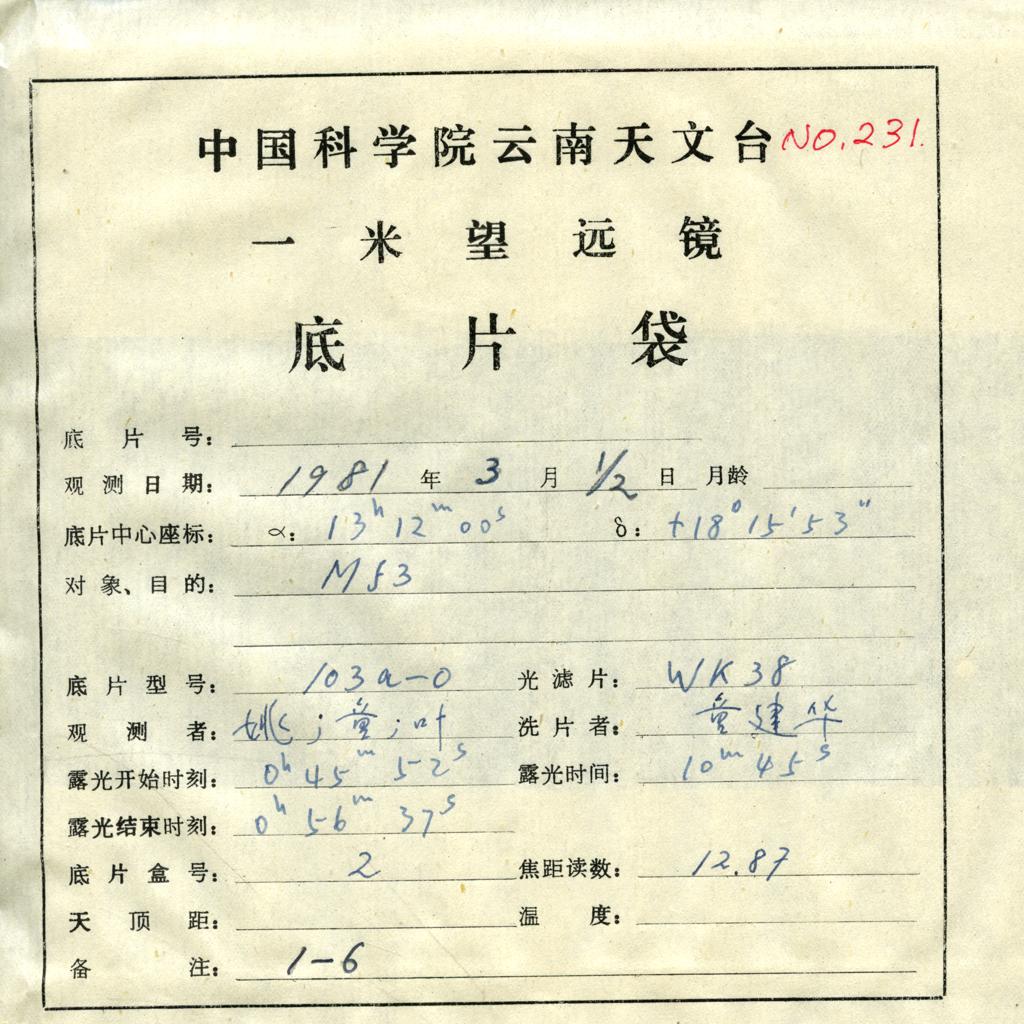 中国科学院云南天文台 NO.231.
一米望远镜
底片袋
底片号:
观测日期: 1981 年 3 月 1/2 日 月龄
底片中心座标: α: 13h 12m 00s δ: +18° 15' 53"
对象、目的: M53
底片型号: 103a-0 光滤片: WK38
观测者: 姚;童;叶 洗片者: 童建华
露光开始时刻: 0h 45m 52s 露光时间: 10m 45s
露光结束时刻: 0h 56m 37s
底片盒号: 2 焦距读数: 12.87
天顶距: 温度:
备注: 1-6